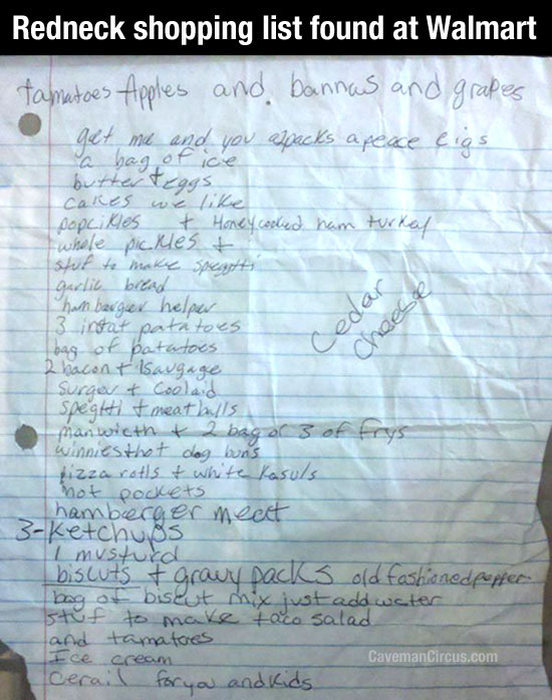 Redneck shopping list found at Walmart
tamatoes Apples and. bannus and grapes
get me and you 2packs apeace cigs
a bag of ice
butter + eggs
cakes we like
popcikles + Honeycooked ham turkey
whole pickles +
stuf to make spegtti
garlic bread
hamberger helper
3 instat patatoes
bag of patatoes
Cedar
Cheese
2 bacon + 1sausage
Surger + Coolaid
speghti + meatballs
manwicth + 2 bag or 3 of frys
winniesthot dog buns
pizza rolls + white kasuls
hot pockets
hamberger meat
3-Ketchups
1 musturd
biscuts + gravy packs old fashionedpepper
bag of biscut mix just add water
stuf to make taco salad
and tamatoes
Ice cream
Cerail for you and kids
CavemanCircus.com